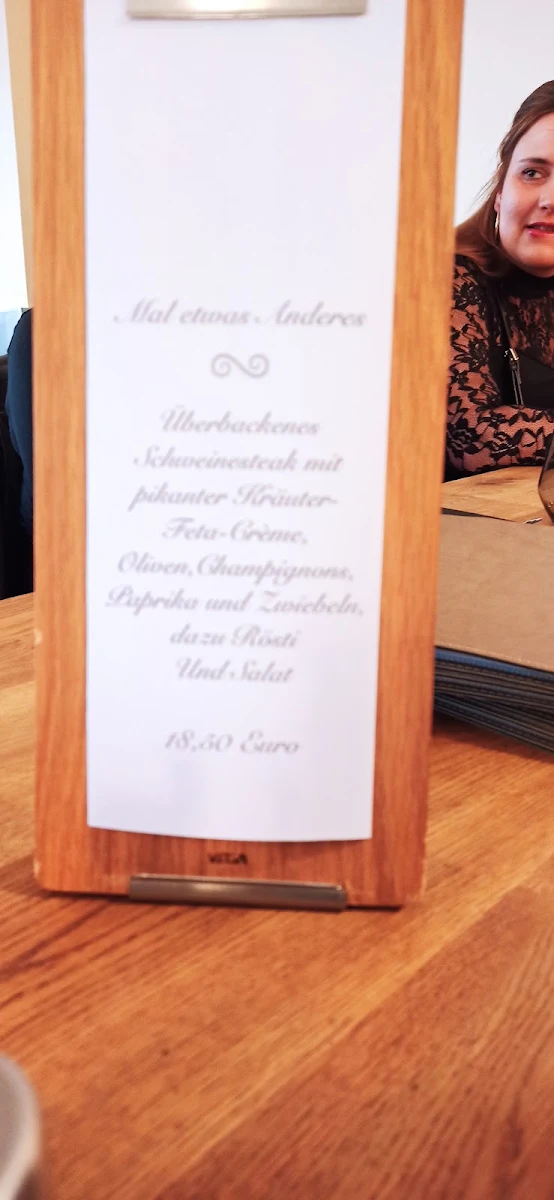 Mal etwas Anderes
Überbackenes
Schweinesteak mit
pikanter Kräuter-
Feta-Crème,
Oliven,Champignons,
Paprika und Zwiebeln,
dazu Rösti
Und Salat
18,50 Euro
VEGA